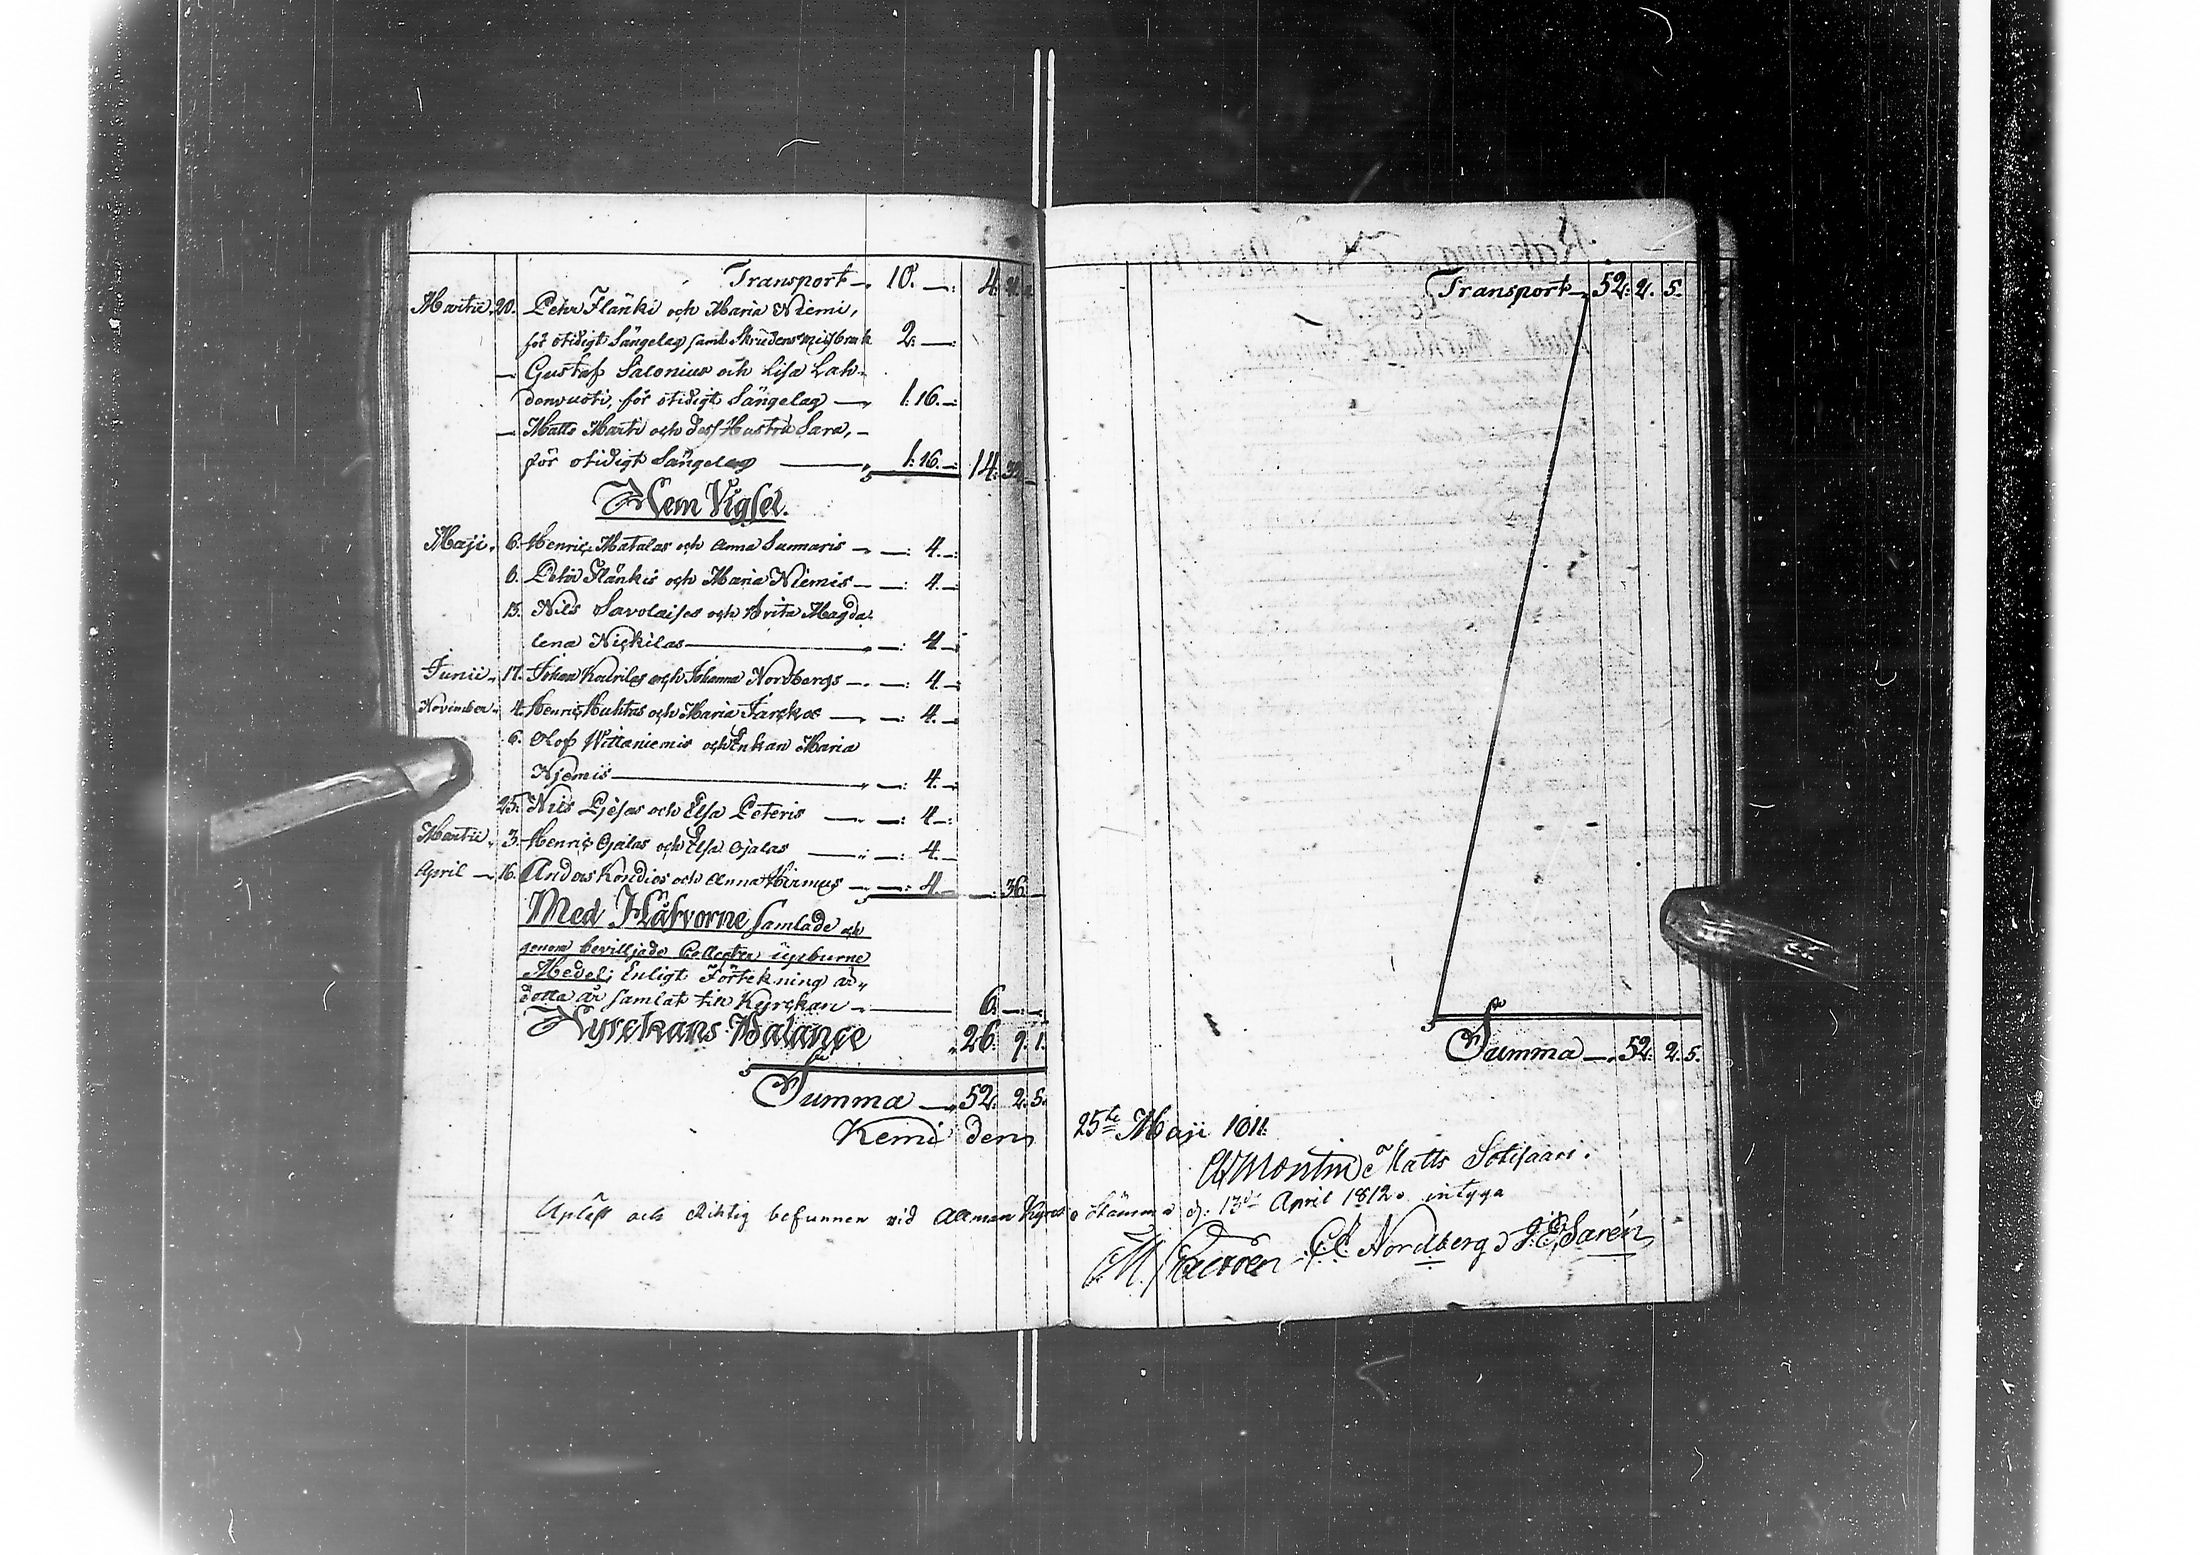 Transport 10. 4. 21.
Martii 20. Pehr Flänki och Maria Niemi,
för otidigt Sängelag samt Skrudens missbruk 2:
Gustaf Salonius och Lisa Lah-
denvuoti, för otidigt Sängelag 1: 16.
Matts Marti och dess Hustru Sara,
för otidigt Sängelag 1: 16. 14: 32.
Hem Vigsel.
Maji. 6. Henric Matalas och Anna Sunnaris 4.
6. Petr Flänkis och Maria Niemis 4.
13. Nils Savolaises och Brita Magda-
lena Nickilas 4.
Junii 17. Johan Kauriles och Johanna Nordbergs 4.
November 4. Henric Huhtas och Maria Jarckos 4.
6. Olof Wittaniemis och Enkan Maria
Njemis 4.
25. Nils Pjesas och Elsa Peteris 4.
Martii 3. Henric Ojalas och Elsa Ojalas 4.
April 16. Anders Kondios och Anna Hirmus 4. 36.
Med Håfvorne samlade och
genom bevilljade Collecter upburne
Medel; Enligt Förtekning är
detta år samlat till Kyrckan 6.
Kyrckans Balance 26. 9. 1.
Summa 52. 2. 5.
Kemi den
Transport 52: 2. 5.
Summa 52. 2. 5.
25te Maji 1811.
Montin Matts Sotisaari.
Upläst och Riktig befunnen vid Allman Kyrcko Stämma d. 13de April 1812. intyga
M. Nordberg J. E. Sarén